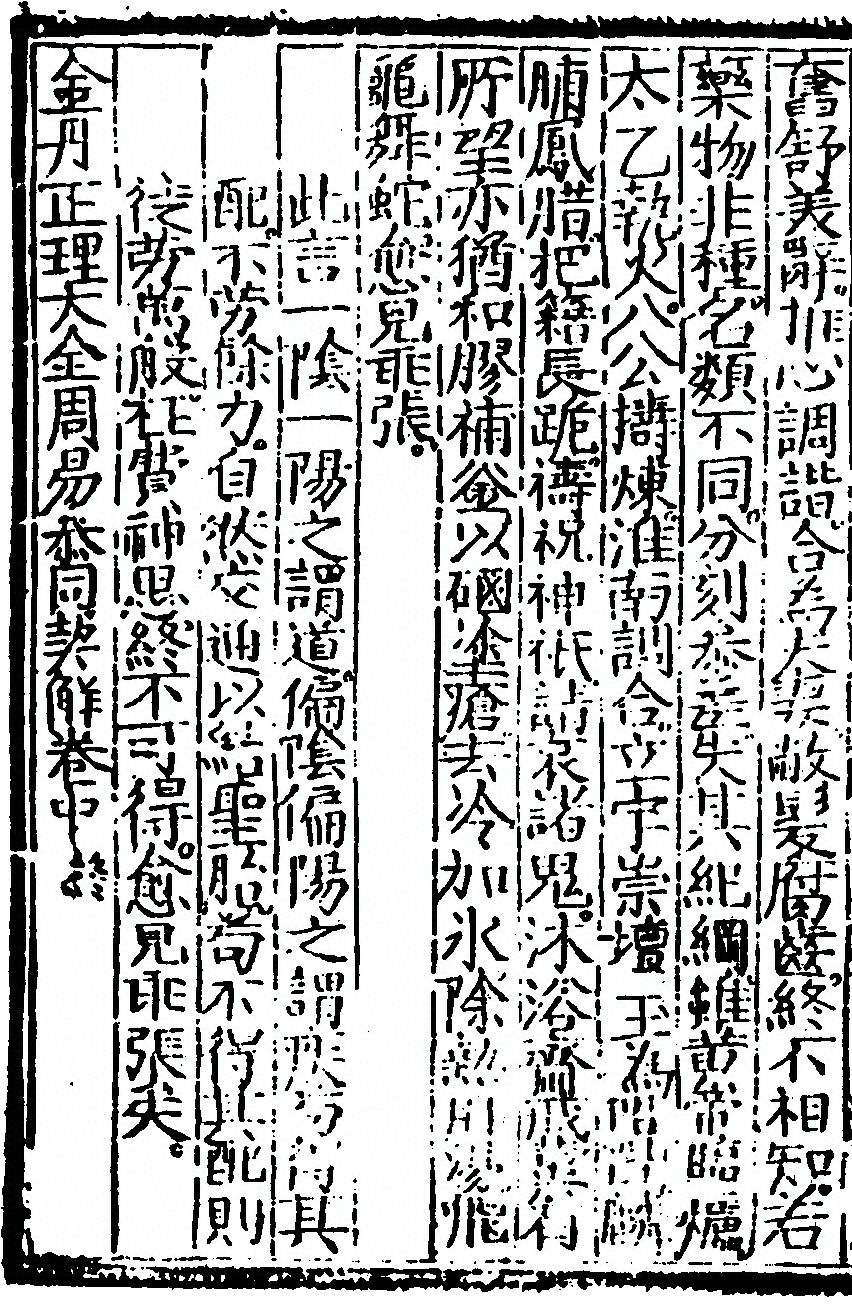 奮舒美辭推心調諧合為夫妻敝髮腐齒終不相知若
藥物非種名類不同分刻參差失其紀綱雖黃帝臨爐
太乙執火八公擣煉淮南調合立宇崇壇玉為階陛麟
脯鳳腊把籍長跪禱祝神祇請哀諸鬼沐浴齋戒冀有
所望亦猶和膠補釜以硇塗瘡去冷加氷除熱用湯飛
龜舞蛇愈見乖張
此言一陰一陽之謂道偏陰偏陽之謂疾苟得其
配不勞餘力自然交通以結聖胎苟不得其配則
徒勞萬般枉費神思終不可得愈見乖張矣
金丹正理大全周易參同契解卷中終